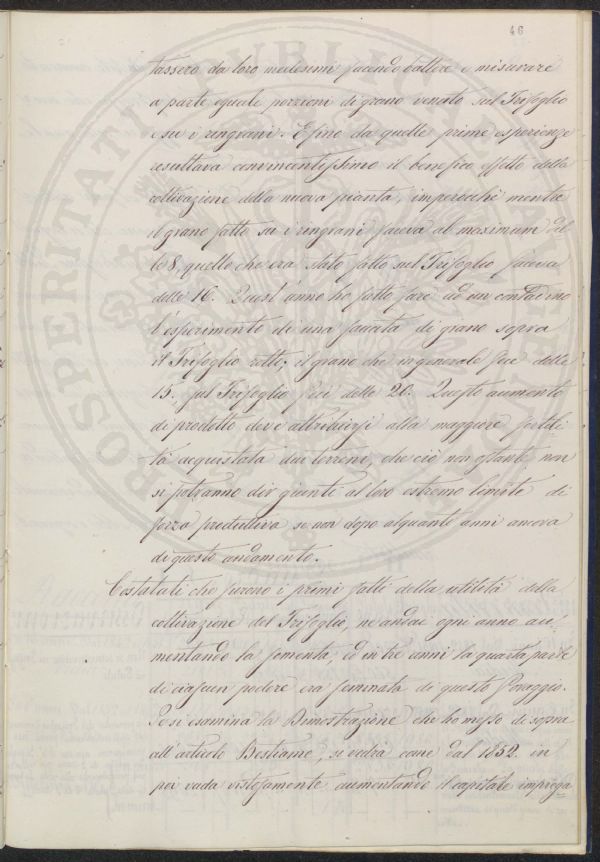 46
tassero da loro medesimi facendo battere e misurare
a parte eguale porzioni di grano venato sul Trifoglio
e su i ringrani. E fino da quelle prime esperienze
resultava convincentissimo il benefico effetto della
coltivazione della nuova pianta; imperocchè mentre
il grano fatto su i ringrani faceva al maximum del
le 8, quello che era stato fatto sul Trifoglio faceva
delle 16. Quest'anno ho fatto fare ad un contadino
l'esperimento di una faccata di grano sopra
il Trifoglio rotto; il grano che in generale fece delle
15. sul Trifoglio fece delle 20. Questo aumento
di prodotto deve attribuirsi alla maggiore fertili-
tà acquistata dai terreni, che ciò non ostante, non
si potranno dir giunti al loro estremo limite di
forza produttiva se non dopo alquanti anni ancora
di questo andamento.
Costatati che furono i primi fatti della utilità della
coltivazione del Trifoglio, ne andai ogni anno au-
mentando la sementa, ed in tre anni la quarta parte
di ciascun podere era seminata di questo Foraggio.
Se si esamina la Dimostrazione che ho messo di sopra
all'articolo Bestiame, si vedrà come dal 1852. in
poi vada vistosamente aumentando il capitale impiega
PROSPERITATI PUBLICAE